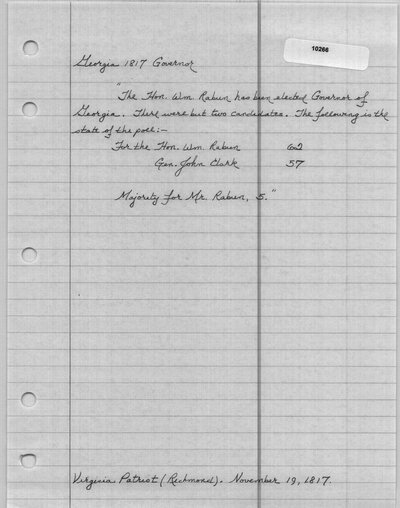 10266
Georgia 1817 Governor
"The Hon. Wm. Rabun has been elected Governor of
Georgia. There were but two candidates. The following is the
state of the poll:-
For the Hon. Wm. Rabun 62
Gen. John Clark 57
Majority for Mr. Rabun, 5."
Virginia Patriot (Richmond). November 19, 1817.